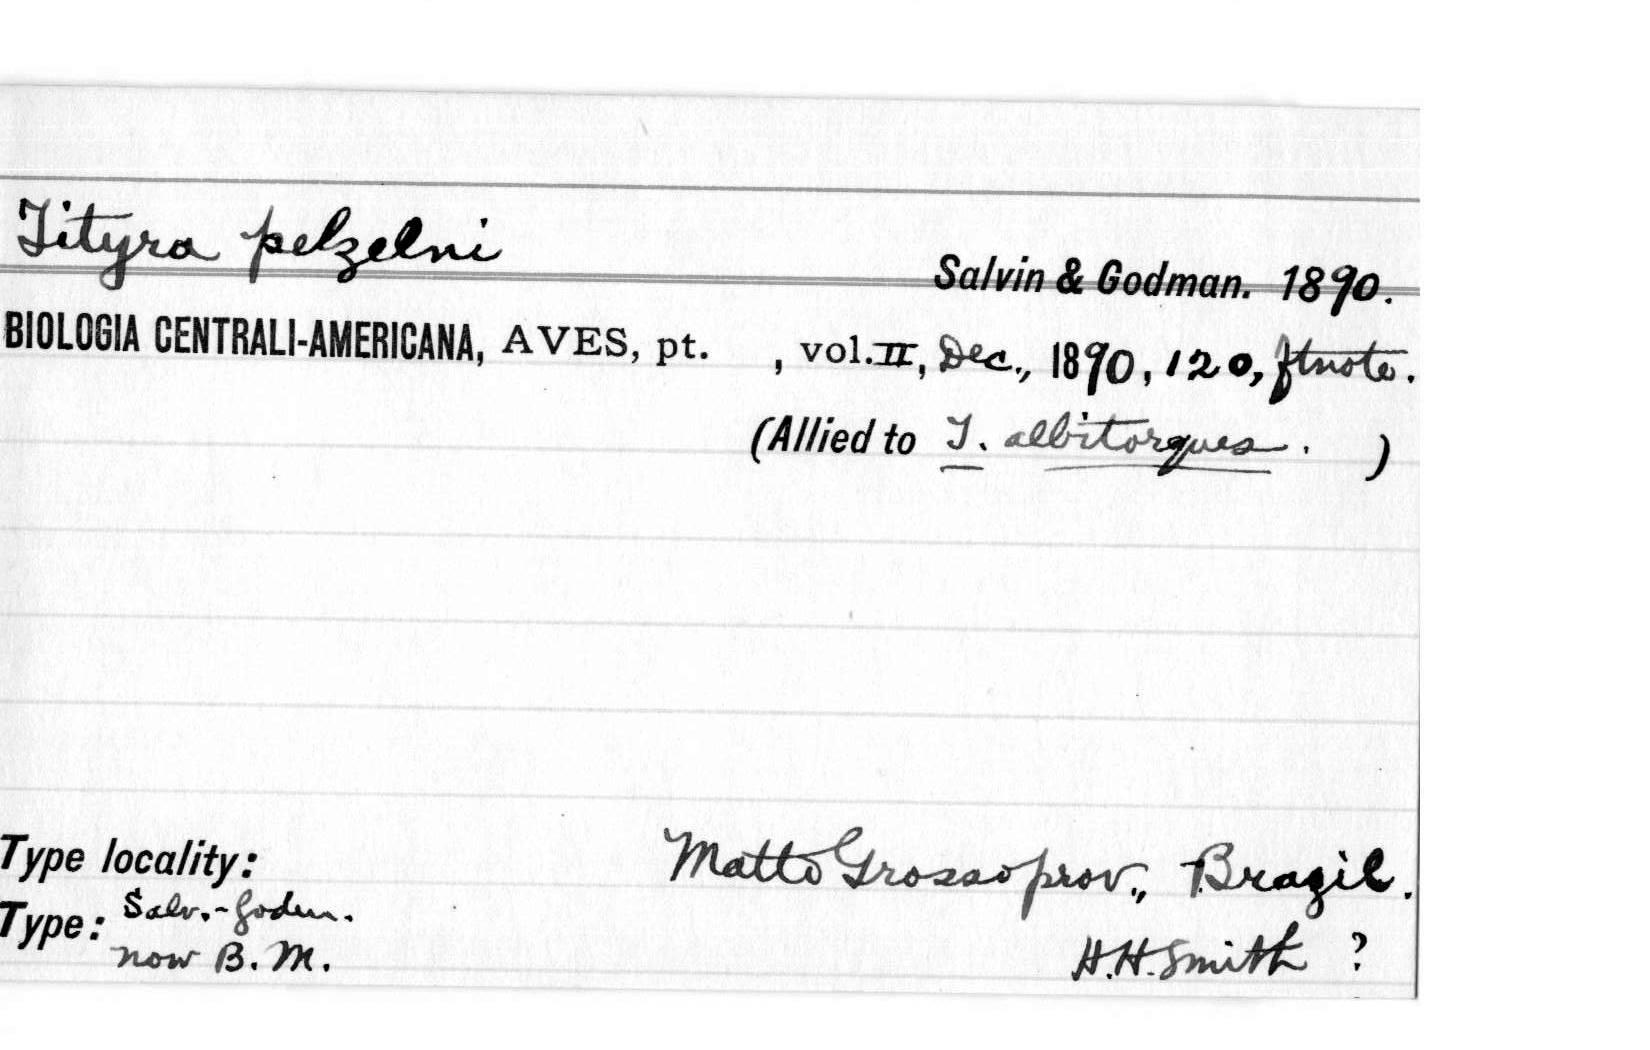 Tityra pelzelni
Salvin & Godman. 1890.
BIOLOGIA CENTRALI-AMERICANA, AVES, pt. , vol. II, Dec., 1890, 120, ftnote.
(Allied to T. albitorques. )
Type locality: Matto Grosso prov., Brazil.
Type: Salv.-Godm.
now B. M. H.H. Smith ?